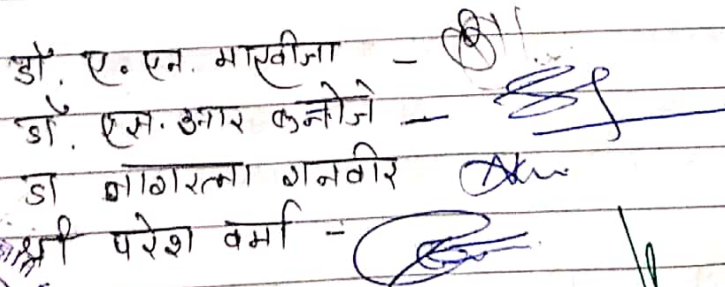 डॉ. ए. एन. माखीजा -
डॉ. एस. आर कनोजे -
डा नागरत्ना गनवीर
श्री परेश वर्मा -